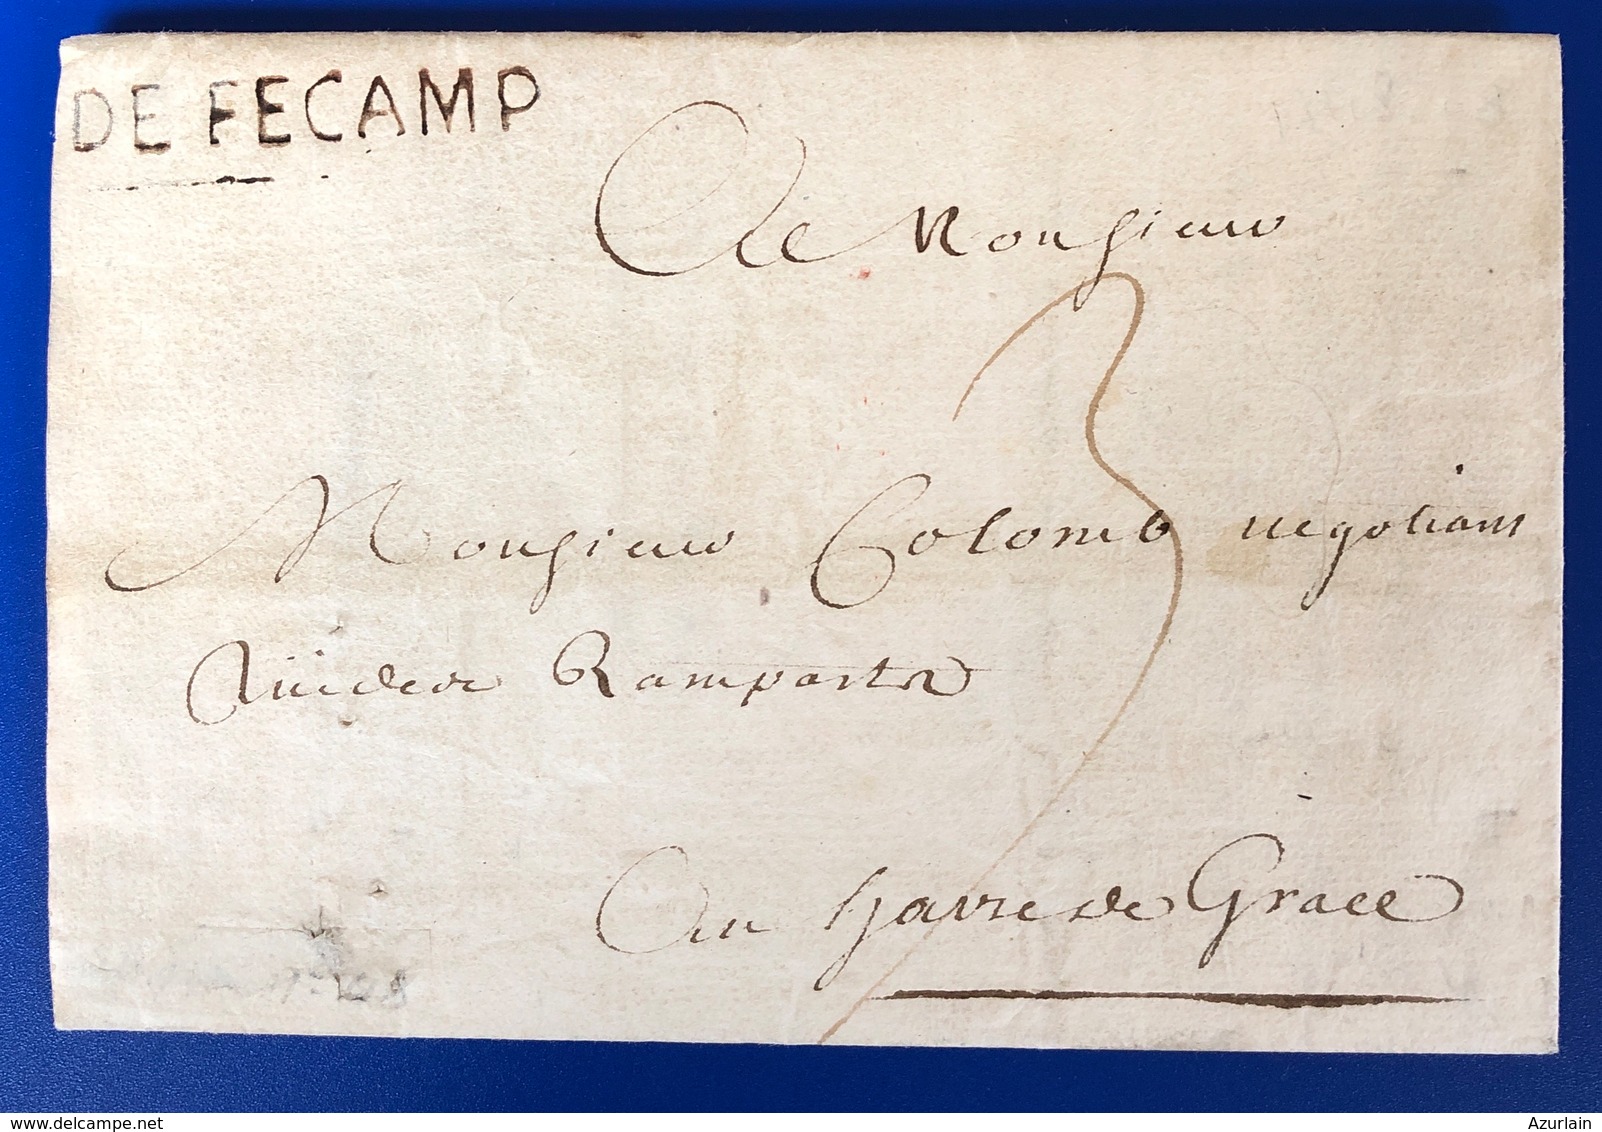 DE FECAMP
A Monsieur
3
Monsieur Colomb negotiant
Ramparts
Au havre de Grace
delcampe.net
Azurlain